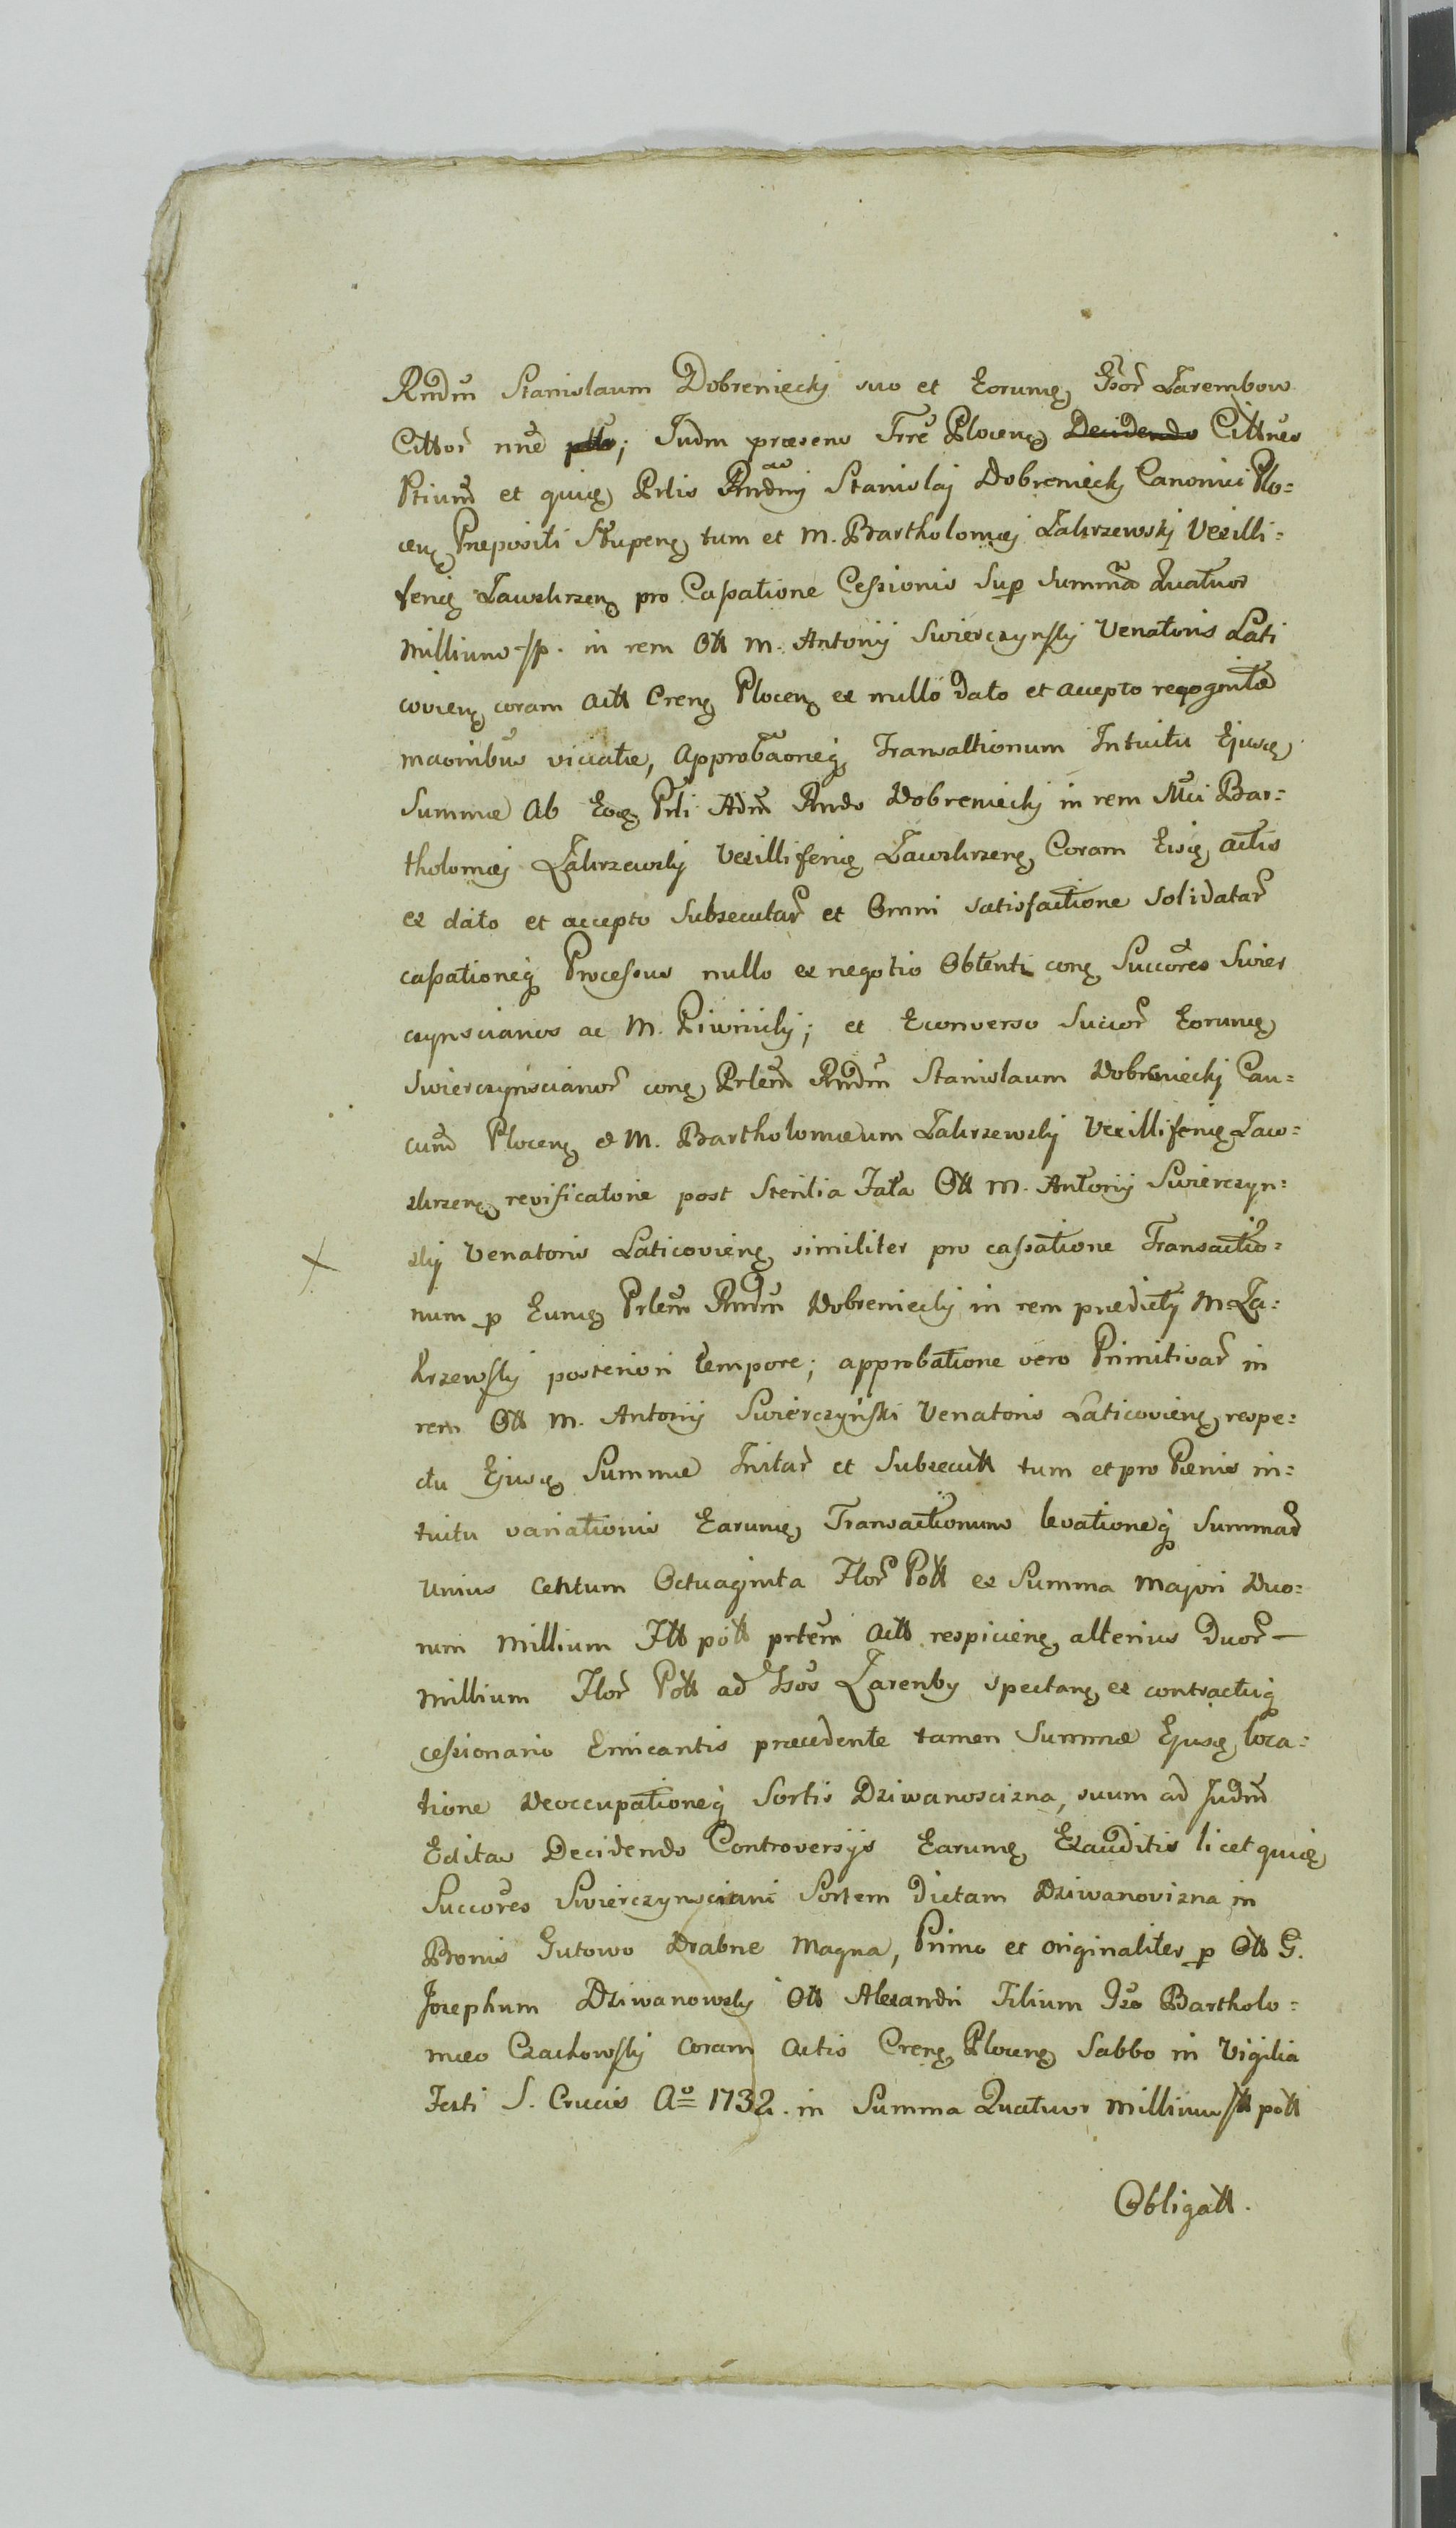 Rndm Stanislaum Dobreniecki suo et Eorumq Gsor Zarembow
Cittor nne ptto; Judm praesens Trre Plocenq Decidendo Cittnes
Ptium et quiq Prlis Rndmi Stanislaj Dobreniecki Canonici Plo=
cenq Praepositi Stupenq tum et M. Bartholomaej Zakrzewskj Vexilli=
feriq Zawskrzenq pro Cassatione Cessionis Sup Summa Quatuor
Millium fp. in rem Ott M. Antonij Swierczynskj Venatoris Lati
covienq coram Actt Crenq Plocenq ex nullo dato et accepto recognitae
maonibus viciatae, Approbaoneq Transactionum Intuitu Ejusq
Summae Ab Eoq Prli Adm Rndo Dobreniecki in rem Mci Bar=
tholomaej Zakrzewskj Vexilliferiq Zawskrzenq Coram Eisq actis
ex dato et accepto Subsecutar et Omni satisfactione solidatar
cassationeq Processus nullo ex negotio Obtenti conq Succores Swier
czynscianos ac M. Piwnickj; et Econverso Succor Eorumq
Swierczynscianor conq Prlem Rndm Stanislaum Dobrenieckj Can=
cum Plocenq et M. Bartholomaeum Zakrzewskj Vexilliferiq Zaw=
skrzenq revificatorie post Sterilia Fata Ott M. Antonij Swierczyn=
skj Venatoris Laticovienq similiter pro cassatione Transactio=
num p Eumq Prlem Rndm Dobrenieckj in rem praedicti M. Za=
krzewskj posteriori tempore; approbatione vero Primitivar in
rem Ott M. Antonij Swierczyński Venatoris Laticovienq respe=
ctu Ejusq Summae Initar et Subsecutt tum et pro Paenis in=
tuitu variationis Earumq Transactionum levationeq Summar
Unius Centum Octuaginta Flor Pott ex Summa Majori Duo=
rum Millium Ftt pott prtem Actt respicienq alterius Duor —
Millium Flor Pott ad Gsos Zaremby spectanq ex contractuq
cessionario Emicantis praecedente tamen Summae Ejusq loca=
tione Deoccupationeq Sortis Dziwanoscizna, suum ad Judm
Editas Decidendo Controversijs Earumq Exauditis licet quiq
Succores Swierczynsciani Sortem dictam Dziwanovizna in
Bonis Gutowo Drabne Magna, Primo et originaliter p Ott G.
Josephum Dziwanowskj Ott Alexandri Filium Gso Bartholo=
maeo Czachowskj coram Actis Crenq Plocenq Sabbo in Vigilia
Festi S. Crucis Ao 1732. in Summa Quatuor Millium ftt pott
Obligatt.